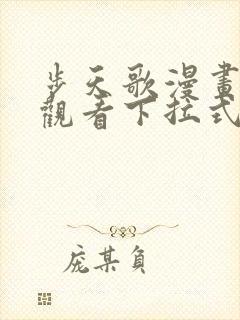 步天歌漫畫
觀看下拉式
庞某負